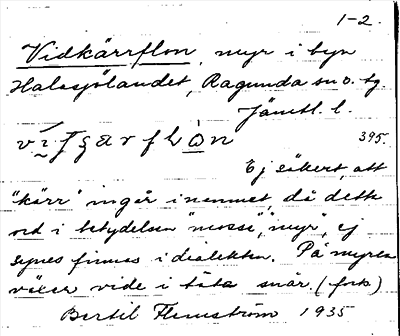 1-2.
Vidkärrflon, myr i byn
Halasjölandet, Ragunda sn o. tg.
Jämtl. l.
395.
Ej säkert, att
"kärr" ingår i namnet, då detta
ord i betydelsen "mosse", "myr", ej
synes finnas i dialekten. På myren
växer vide i täta snår. (forts)
Bertil Flemström 1935